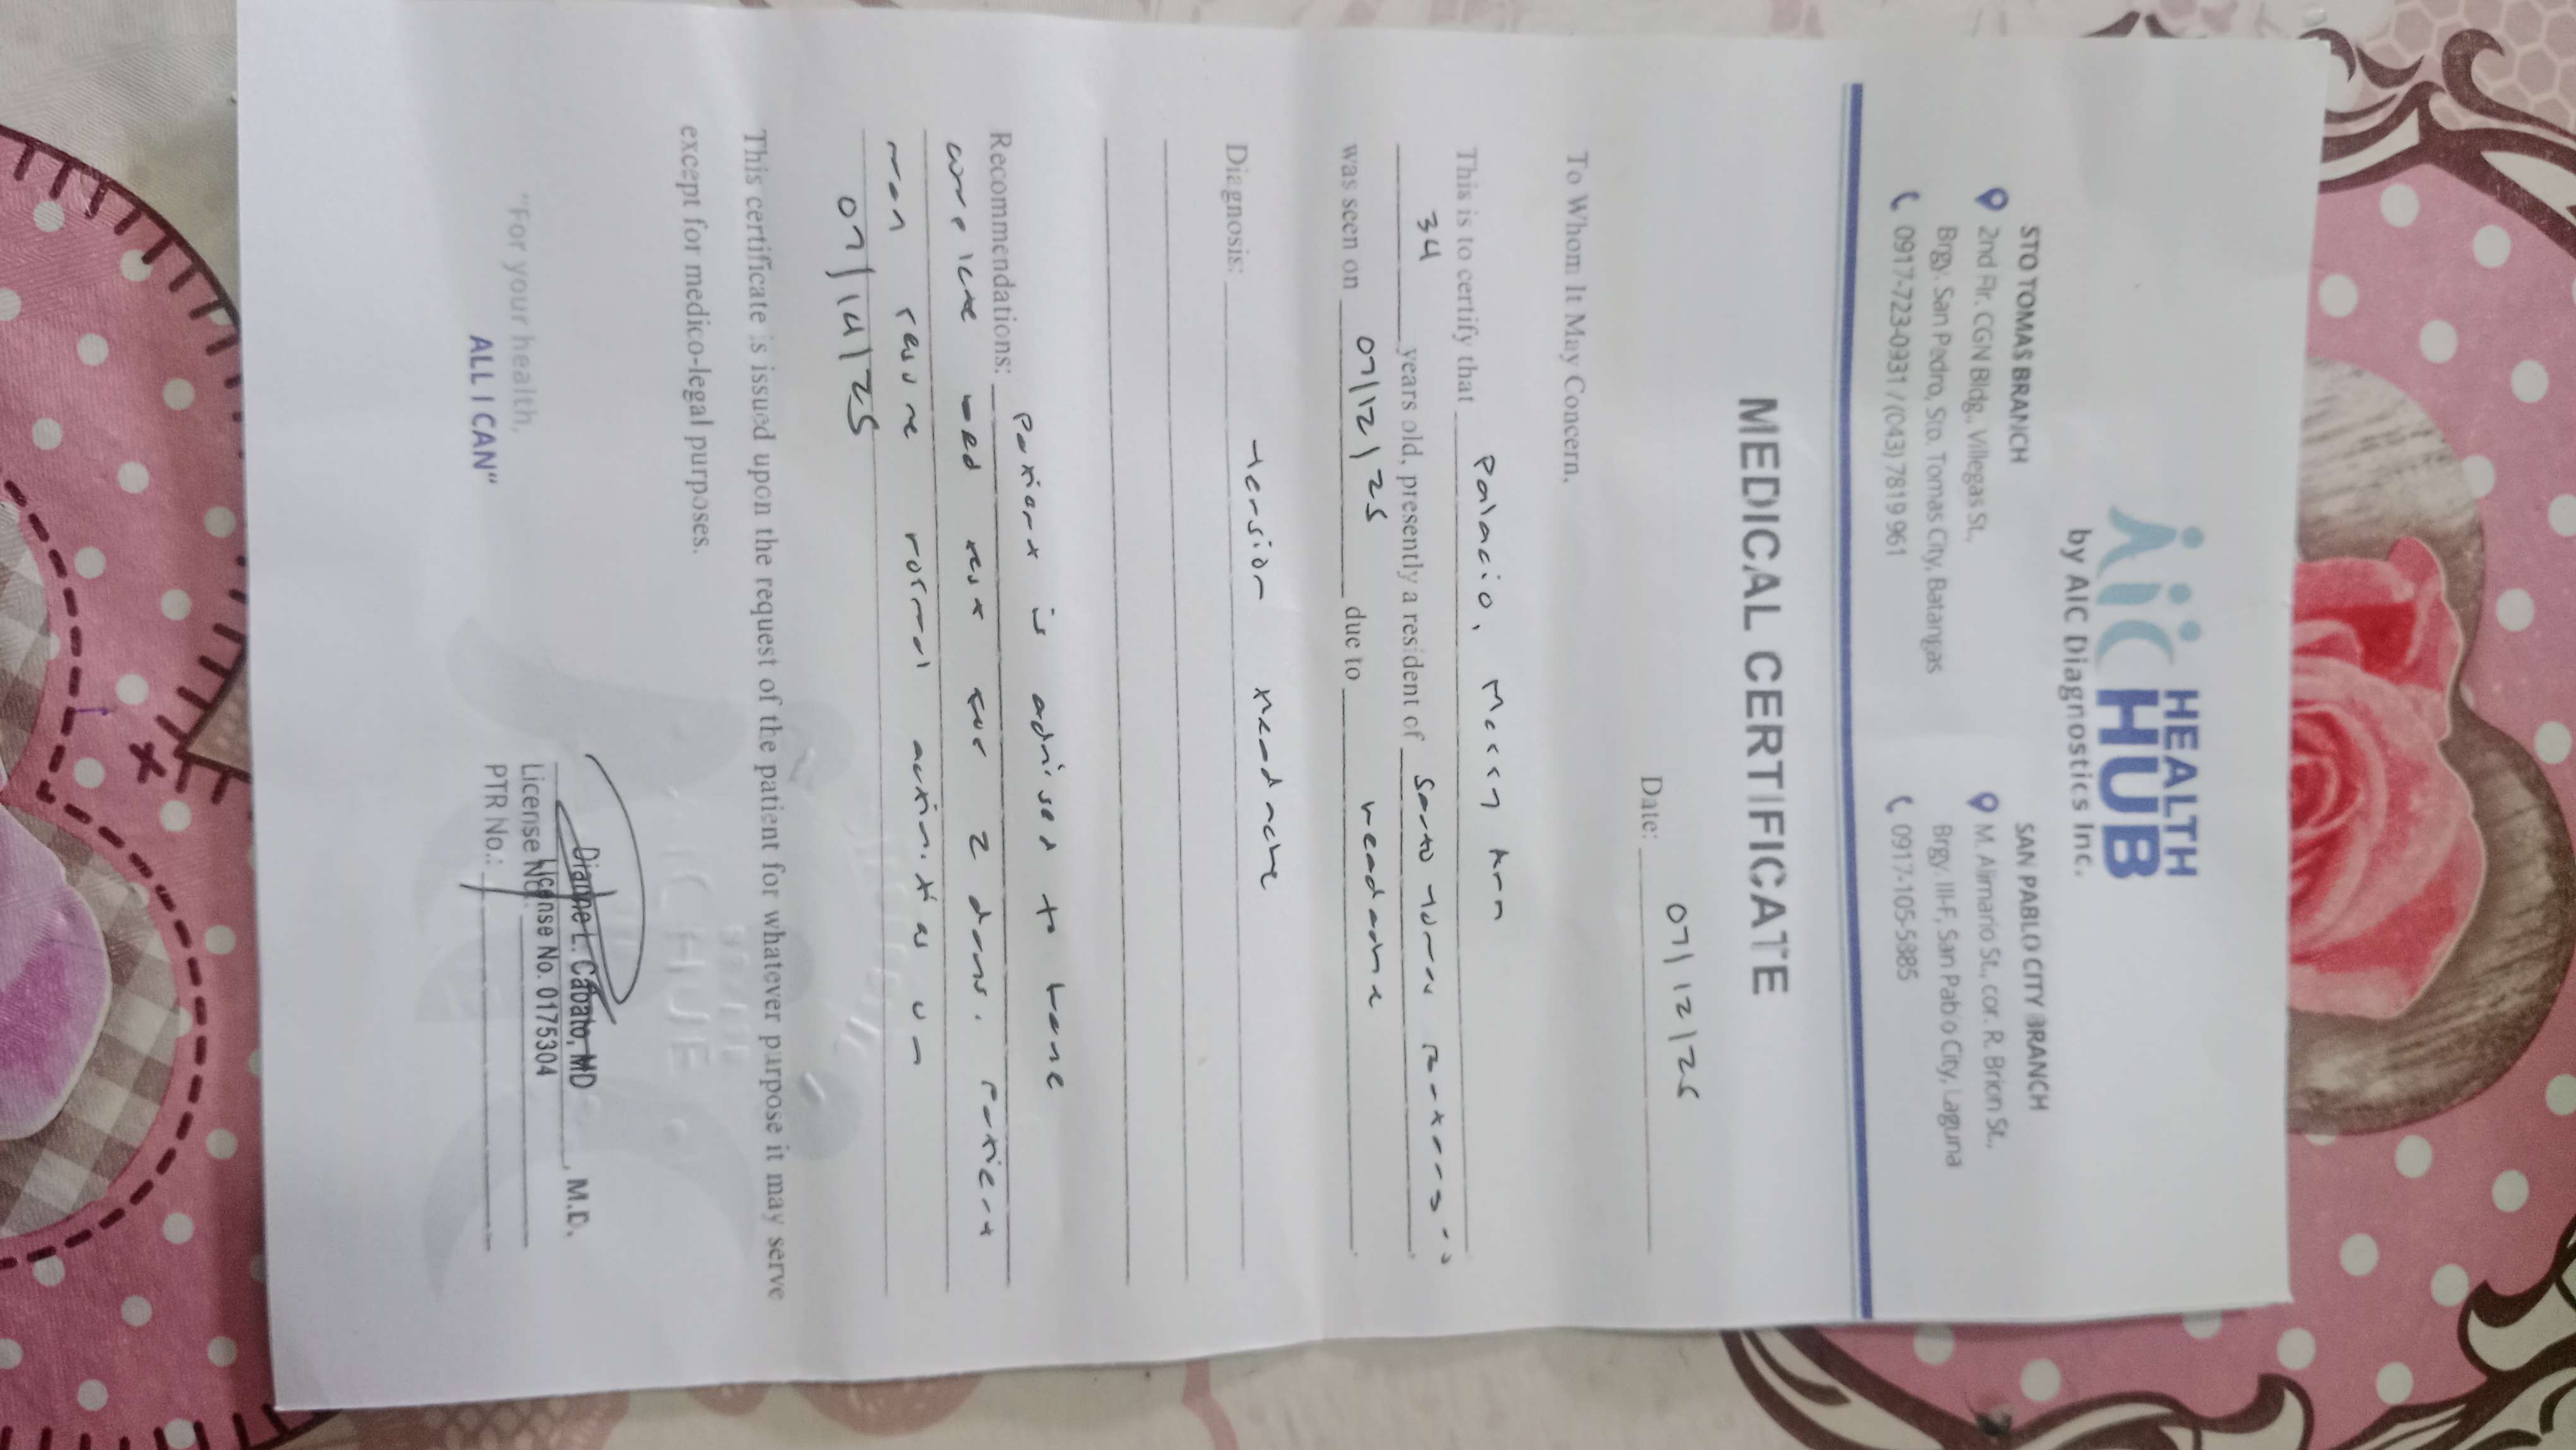 AIC HEALTH HUB
by AIC Diagnostics Inc.
STO TOMAS BRANCH
2nd Flr. CGN Bldg., Villegas St.,
Brgy. San Pedro, Sto. Tomas City, Batangas
0917-723-0931 / (043) 7819 961
SAN PABLO CITY BRANCH
M. Alimario St., cor. R. Brion St.,
Brgy. III-F, San Pablo City, Laguna
0917-105-5885
MEDICAL CERTIFICATE
Date: 07/12/25
To Whom It May Concern,
This is to certify that Palacio,
34 years old, presently a resident of Santo Tomas Batangas
was seen on 07/12/25 due to headache
Diagnosis: Tension headache
Recommendations: Patient is advised to have
bed rest for 2 days. Patient
may resume normal activities on
07/14/25
This certificate is issued upon the request of the patient for whatever purpose it may serve
except for medico-legal purposes.
Dianne L. Cabato, MD, M.D.
License No. License No. 0175304
PTR No.:
"For your health,
ALL I CAN"